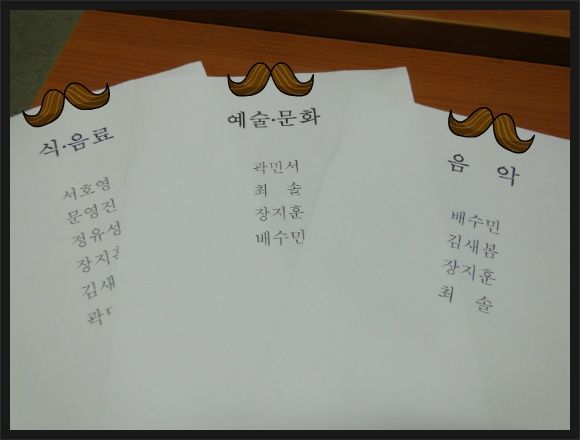 식·음료
서호영
문영진
정유성
장지
김새
예술·문화
곽민서
최 솔
장지훈
배수민
음 악
배수민
김새봄
장지훈
최 솔